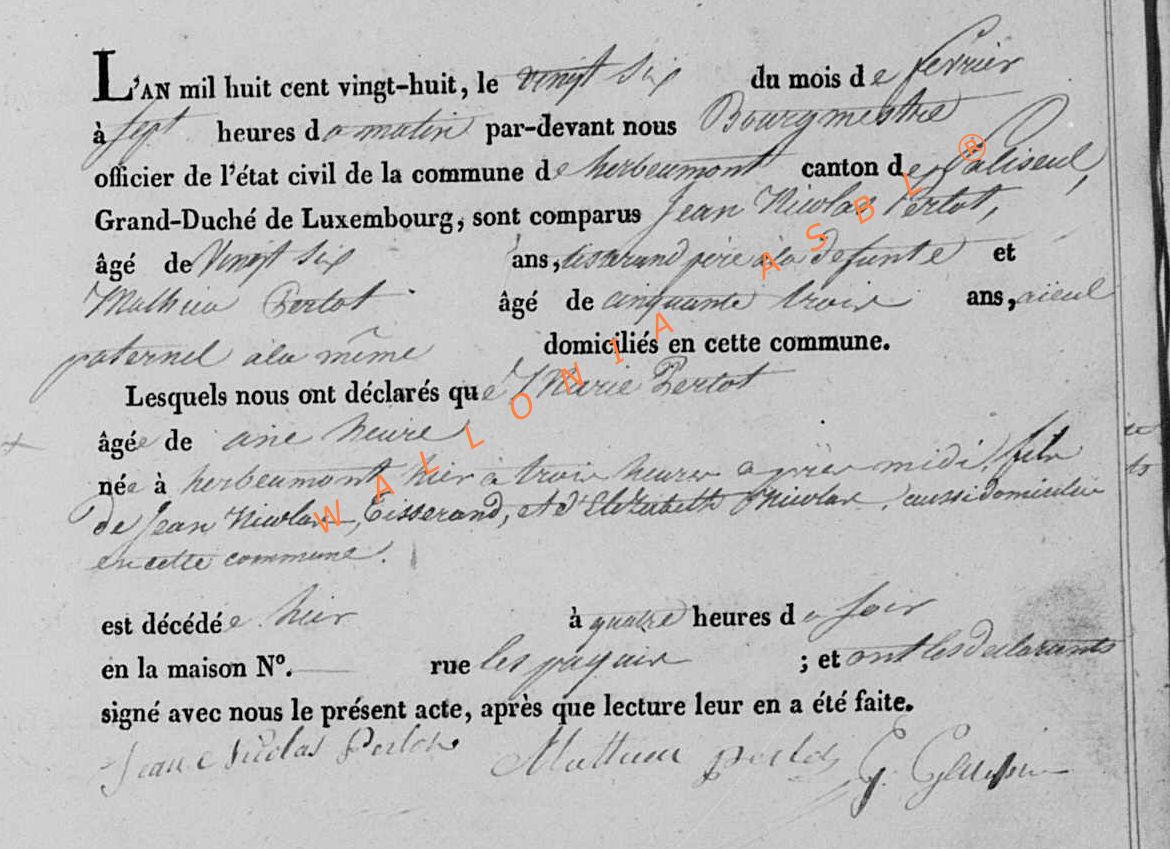 L'AN mil huit cent vingt-huit, le vingt six du mois de fevrier
à sept heures du matin par-devant nous Bourgmestre
officier de l'état civil de la commune de herbeumont canton de Paliseul,
Grand-Duché de Luxembourg, sont comparus Jean Nicolas Pertot,
âgé de Vingt six ans, tisserand père à la defunte et
Mathieu Pertot âgé de cinquante trois ans, aieul
paternel à la même domiciliés en cette commune.
Lesquels nous ont déclarés que Marie Pertot
âgée de une heure
née à herbeumont hier à trois heures après midi, fille
de Jean Nicolas, Tisserand, et d'Elizabeth Nicolas, aussi domiciliés
en cette commune.
est décédée hier à quatre heures du soir
en la maison N°. rue les paquis ; et ont les declarants
signé avec nous le présent acte, après que lecture leur en a été faite.
Jean Nicolas Pertot Mathieu pertot G.
WALLONIA ASBL ®